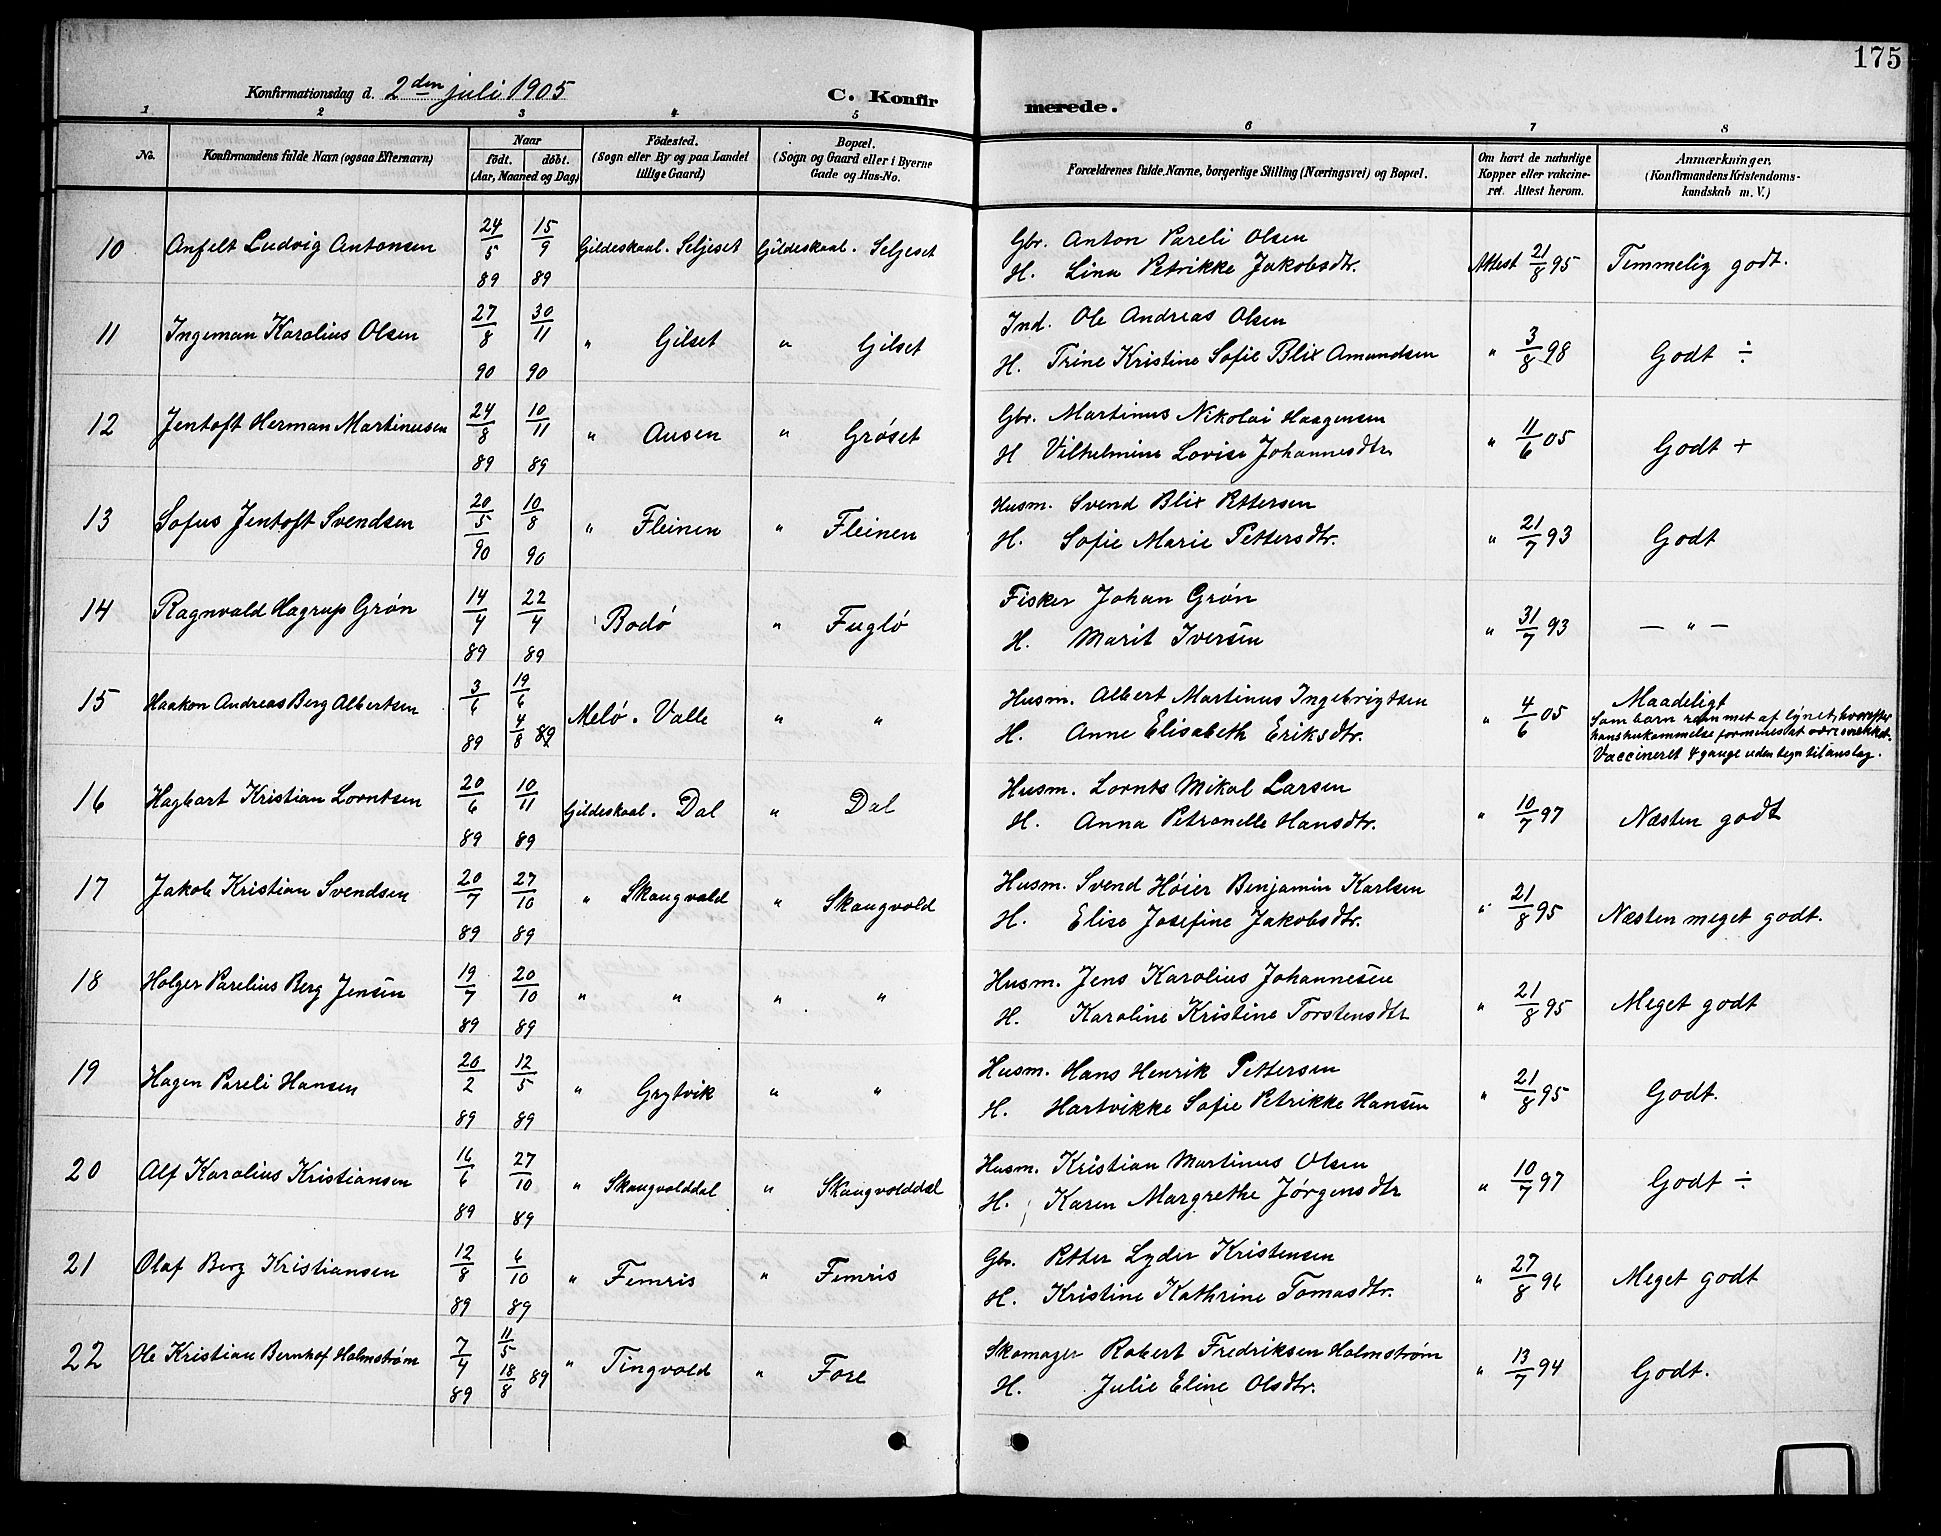 175
Konfirmationsdag d. 2den juli 1905 C. Konfir merede.
1 2 3 4 5 6 7 8
No. Konfirmandens fulde Navn (ogsaa Efternavn) Naar født. døbt. (Aar, Maaned og Dag) Födested. (Sogn eller By og paa Landet tillige Gaard) Bopæl. (Sogn og Gaard eller i Byerne Gade og Hus-No. Forældrenes fulde Navne, borgerlige Stilling (Næringsvei) og Bopæl. Om havt de naturlige Kopper eller vakcineret. Attest herom. Anmærkninger, (Konfirmandens Kristendomskundskab m. V.)
10 Anfelt Ludvig Antonsen 24/5 89 15/9 89 Gildeskaal. Seljeset Gildeskaal. Seljeset Gbr. Anton Pareli Olsen
H. Lina Petrikke Jakobsdtr. Attest 21/8 95 Temmelig godt.
11 Ingeman Karolius Olsen 27/8 90 30/11 90 " Gilset " Gilset Ind. Ole Andreas Olsen
H. Trine Kristine Sofie Blix Amundsen " 3/8 98 Godt ÷
12 Jentoft Herman Martinusen 24/8 89 10/11 89 " Ausen " Grøset Gbr. Martinus Nikolai Haagensen
H Vilhelmine Lovise Johannesdtr. " 11/6 05 Godt +
13 Sofus Jentoft Svendsen 20/5 90 10/8 90 " Fleinen " Fleinen Husm. Svend Blix Pettersen
H. Sofie Marie Pettersdtr. " 21/7 93 Godt
14 Ragnvald Hagrup Grøn 14/4 89 22/4 89 Bodø " Fuglø Fisker Johan Grøn
H. Marit Iversen " 31/7 93 — " —
15 Haakon Andreas Berg Albertsen 3/6 89 19/6 4/8 89 Melø. Valle " " Husm. Albert Martinus Ingebrigtsen
H. Anne Elisabeth Eriksdtr. " 4/6 05 Maadeligt
Som barn rammet af lynet, hvorefter
hans hukommelse formenes at være svækket.
Vaccineret 4 gange uden tegn til anslag.
16 Hagbart Kristian Lorntsen 20/6 89 10/11 89 Gildeskaal. Dal " Dal Husm. Lornts Mikal Larsen
H. Anna Petronelle Hansdtr. " 10/7 97 Næsten godt
17 Jakob Kristian Svendsen 20/7 89 27/10 89 " Skaugvold " Skaugvold Husm. Svend Høier Benjamin Karlsen
H. Elise Josefine Jakobsdtr. " 21/8 95 Næsten meget godt.
18 Holger Parelius Berg Jensen 19/7 89 20/10 89 " " " " Husm. Jens Karolius Johannesen
H. Karoline Kristine Torstensdtr " 21/8 95 Meget godt
19 Hagen Pareli Hansen 20/2 89 12/5 89 " Grytvik " " Husm. Hans Henrik Pettersen
H. Hartvikke Sofie Petrikke Hansen " 21/8 95 Godt.
20 Alf Karolius Kristiansen 16/6 89 27/10 89 " Skaugvolddal " Skaugvolddal Husm. Kristian Martinus Olsen
H. Karen Margrethe Jørgensdtr " 10/7 97 Godt ÷
21 Olaf Berg Kristiansen 12/8 89 6/10 89 " Femris " Femris Gbr. Petter Lyder Kristensen
H. Kristine Kathrine Tomasdtr. " 27/8 96 Meget godt
22 Ole Kristian Bernhof Holmstrøm 7/4 89 11/5 18/8 89 " Tingvold " Fore Skomager Robert Fredriksen Holmstrøm
H. Julie Eline Olsdtr. " 13/7 94 Godt.